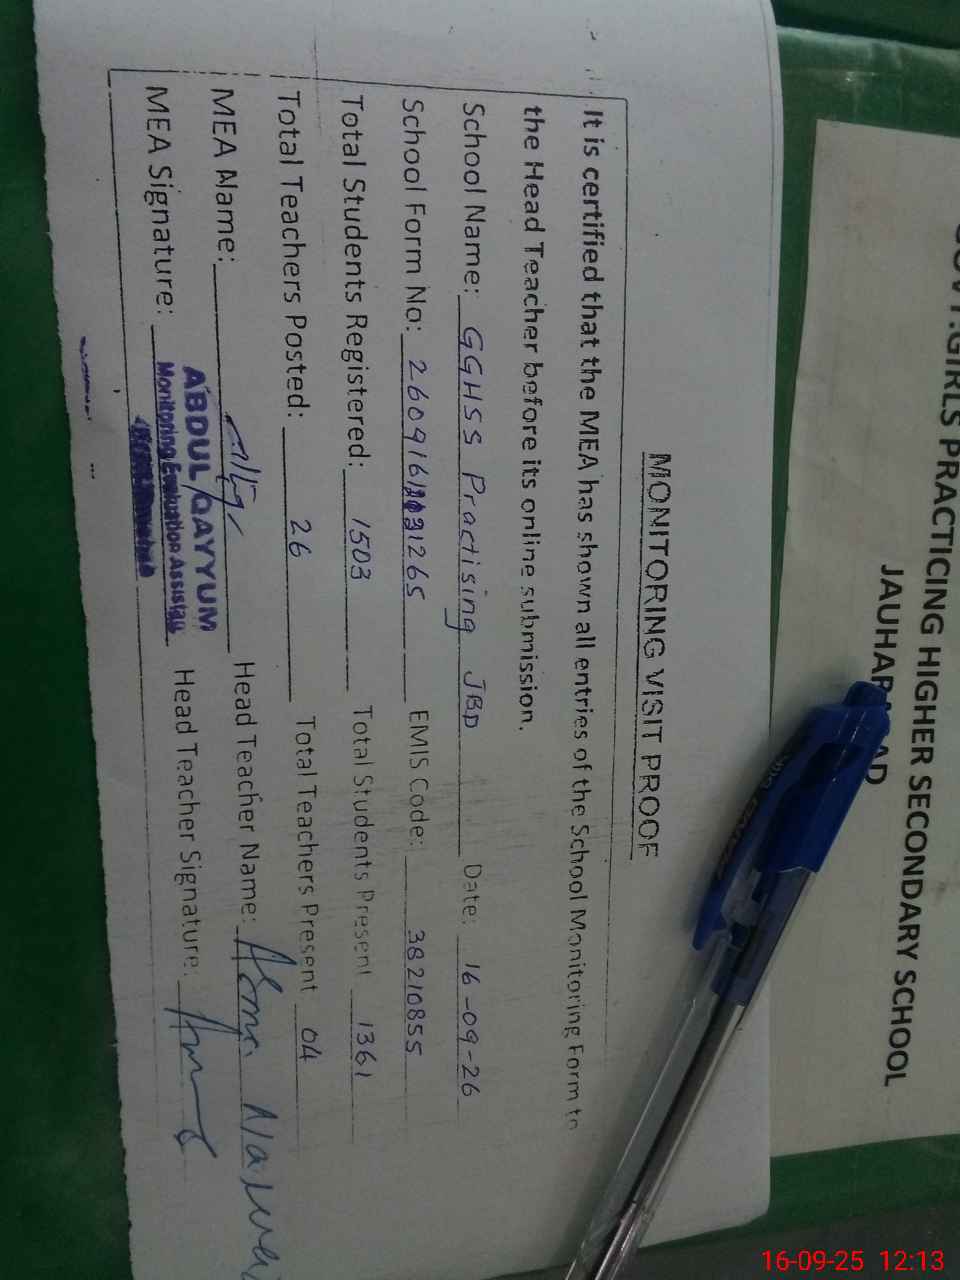 GOVT.GIRLS PRACTICING HIGHER SECONDARY SCHOOL
JAUHARABAD
MONITORING VISIT PROOF
It is certified that the MEA has shown all entries of the School Monitoring Form to
the Head Teacher before its online submission.
School Name: GGHSS Practising JBD Date: 16-09-26
School Form No: EMIS Code: 38210855
Total Students Registered: 1503 Total Students Present 1361
Total Teachers Posted: 26 Total Teachers Present 04
MEA Name: Head Teacher Name:
MEA Signature: Head Teacher Signature:
ABDUL QAYYUM
Monitoring Evaluation Assistant
16-09-25 12:13